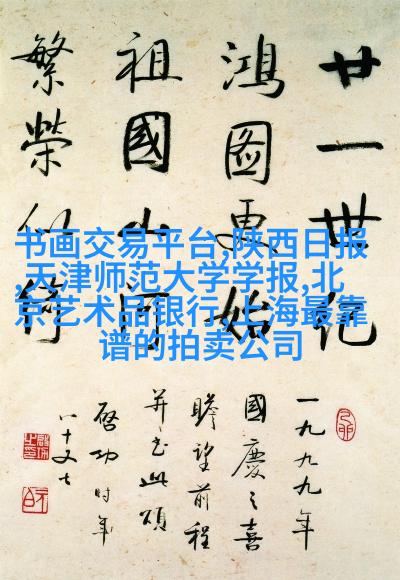 廿一世纪
鴻圖更始
祖國山河
繁榮似
一九九九年
國慶之喜
瞻望前程
并书此頌
啓功时年
八十又七
书画交易平台,陕西日报
,天津师范大学学报,北
京艺术品银行,上海最靠
谱的拍卖公司